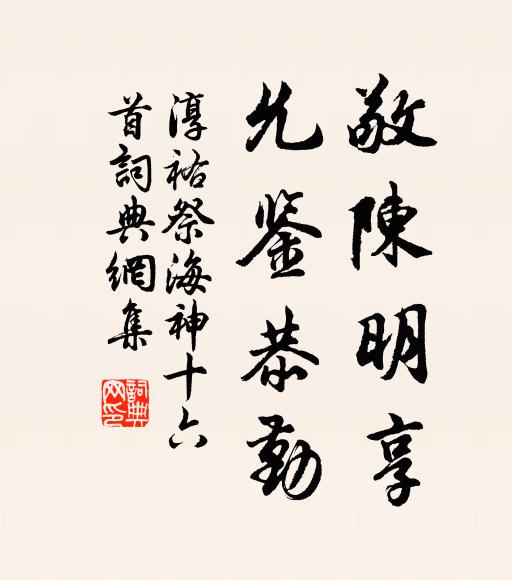 敬陳明享
允鑒恭勤
淳祐祭海神十六
首詞典網集
詞典網印